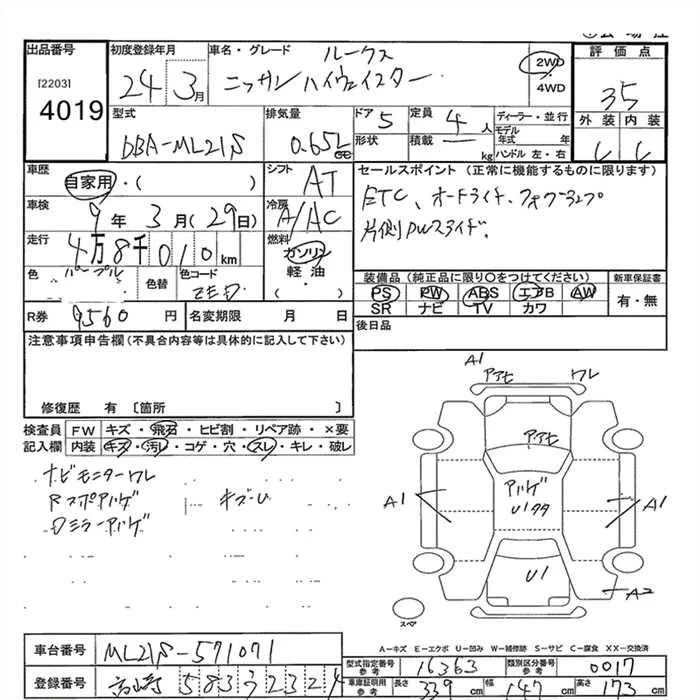 出品番号
[2203]
4019
初度登録年月
24 3月
車名・グレード
ルークス
ニッサン ハイウェイスター
2WD
・
4WD
評価点
35
外装 内装
C C
型式
DBA-ML21S
排気量
0.65L
ドア 5
形状
定員 4人
積載 — kg
ディーラー・並行
モデル年式 年
ハンドル 左・右
車歴
自家用・( )
シフト AT
車検
9年 3月(29日)
冷房 A/AC
走行
4万8千010km
燃料
ガソリン
軽油・
( )
色 パープル
色替
色コード ZED
R券 9560円
名変期限 月 日
セールスポイント(正常に機能するものに限ります)
ETC、オートライト、フォグランプ
片側PWスライド、
装備品(純正品に限り○をつけてください)
PS PW ABS エアB AW
SR ナビ TV カワ
新車保証書
有・無
後日品
注意事項申告欄(不具合内容等は具体的に記入して下さい)
修復歴 有〔箇所 〕
検査員記入欄
FW キズ・飛石・ヒビ割・リペア跡・×要
内装 キズ・汚レ・コゲ・穴・スレ・キレ・破レ
ナビモニターワレ
Rスポアハゲ キズ・U
Dミラーアハゲ
A1
アアセ ワレ
アアセ
アハゲ
U1タタ
A1
A1
U1
A2
スペア
A−キズ E−エクボ U−凹み W−補修跡 S−サビ C−腐食 XX−交換済
車台番号 ML21S-571071
登録番号 高崎 583
型式指定番号 参考 16363
類別区分番号 参考 0017
車庫証明用 参考
長さ 339cm
幅 147cm
高さ 173cm